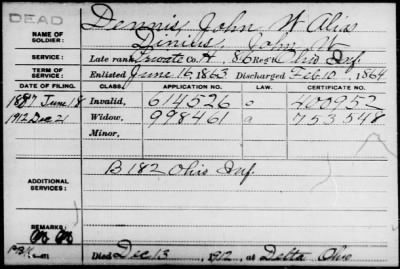 DEAD
Dennis, John W Alias
NAME OF SOLDIER: Dinius, John W
SERVICE: Late rank, Private Co. H, 86 Reg't Ohio Inf.
TERM OF SERVICE: Enlisted June 16, 1863 Discharged Feb 10, 1864
DATE OF FILING. CLASS. APPLICATION NO. CERTIFICATE NO.
1887 June 18 Invalid, 614526 400952
1912 Dec 21 Widow, 998461 753548
Minor,
ADDITIONAL SERVICES: B 182 Ohio Inf.
REMARKS:
Died Dec 13 1912, at Delta Ohio